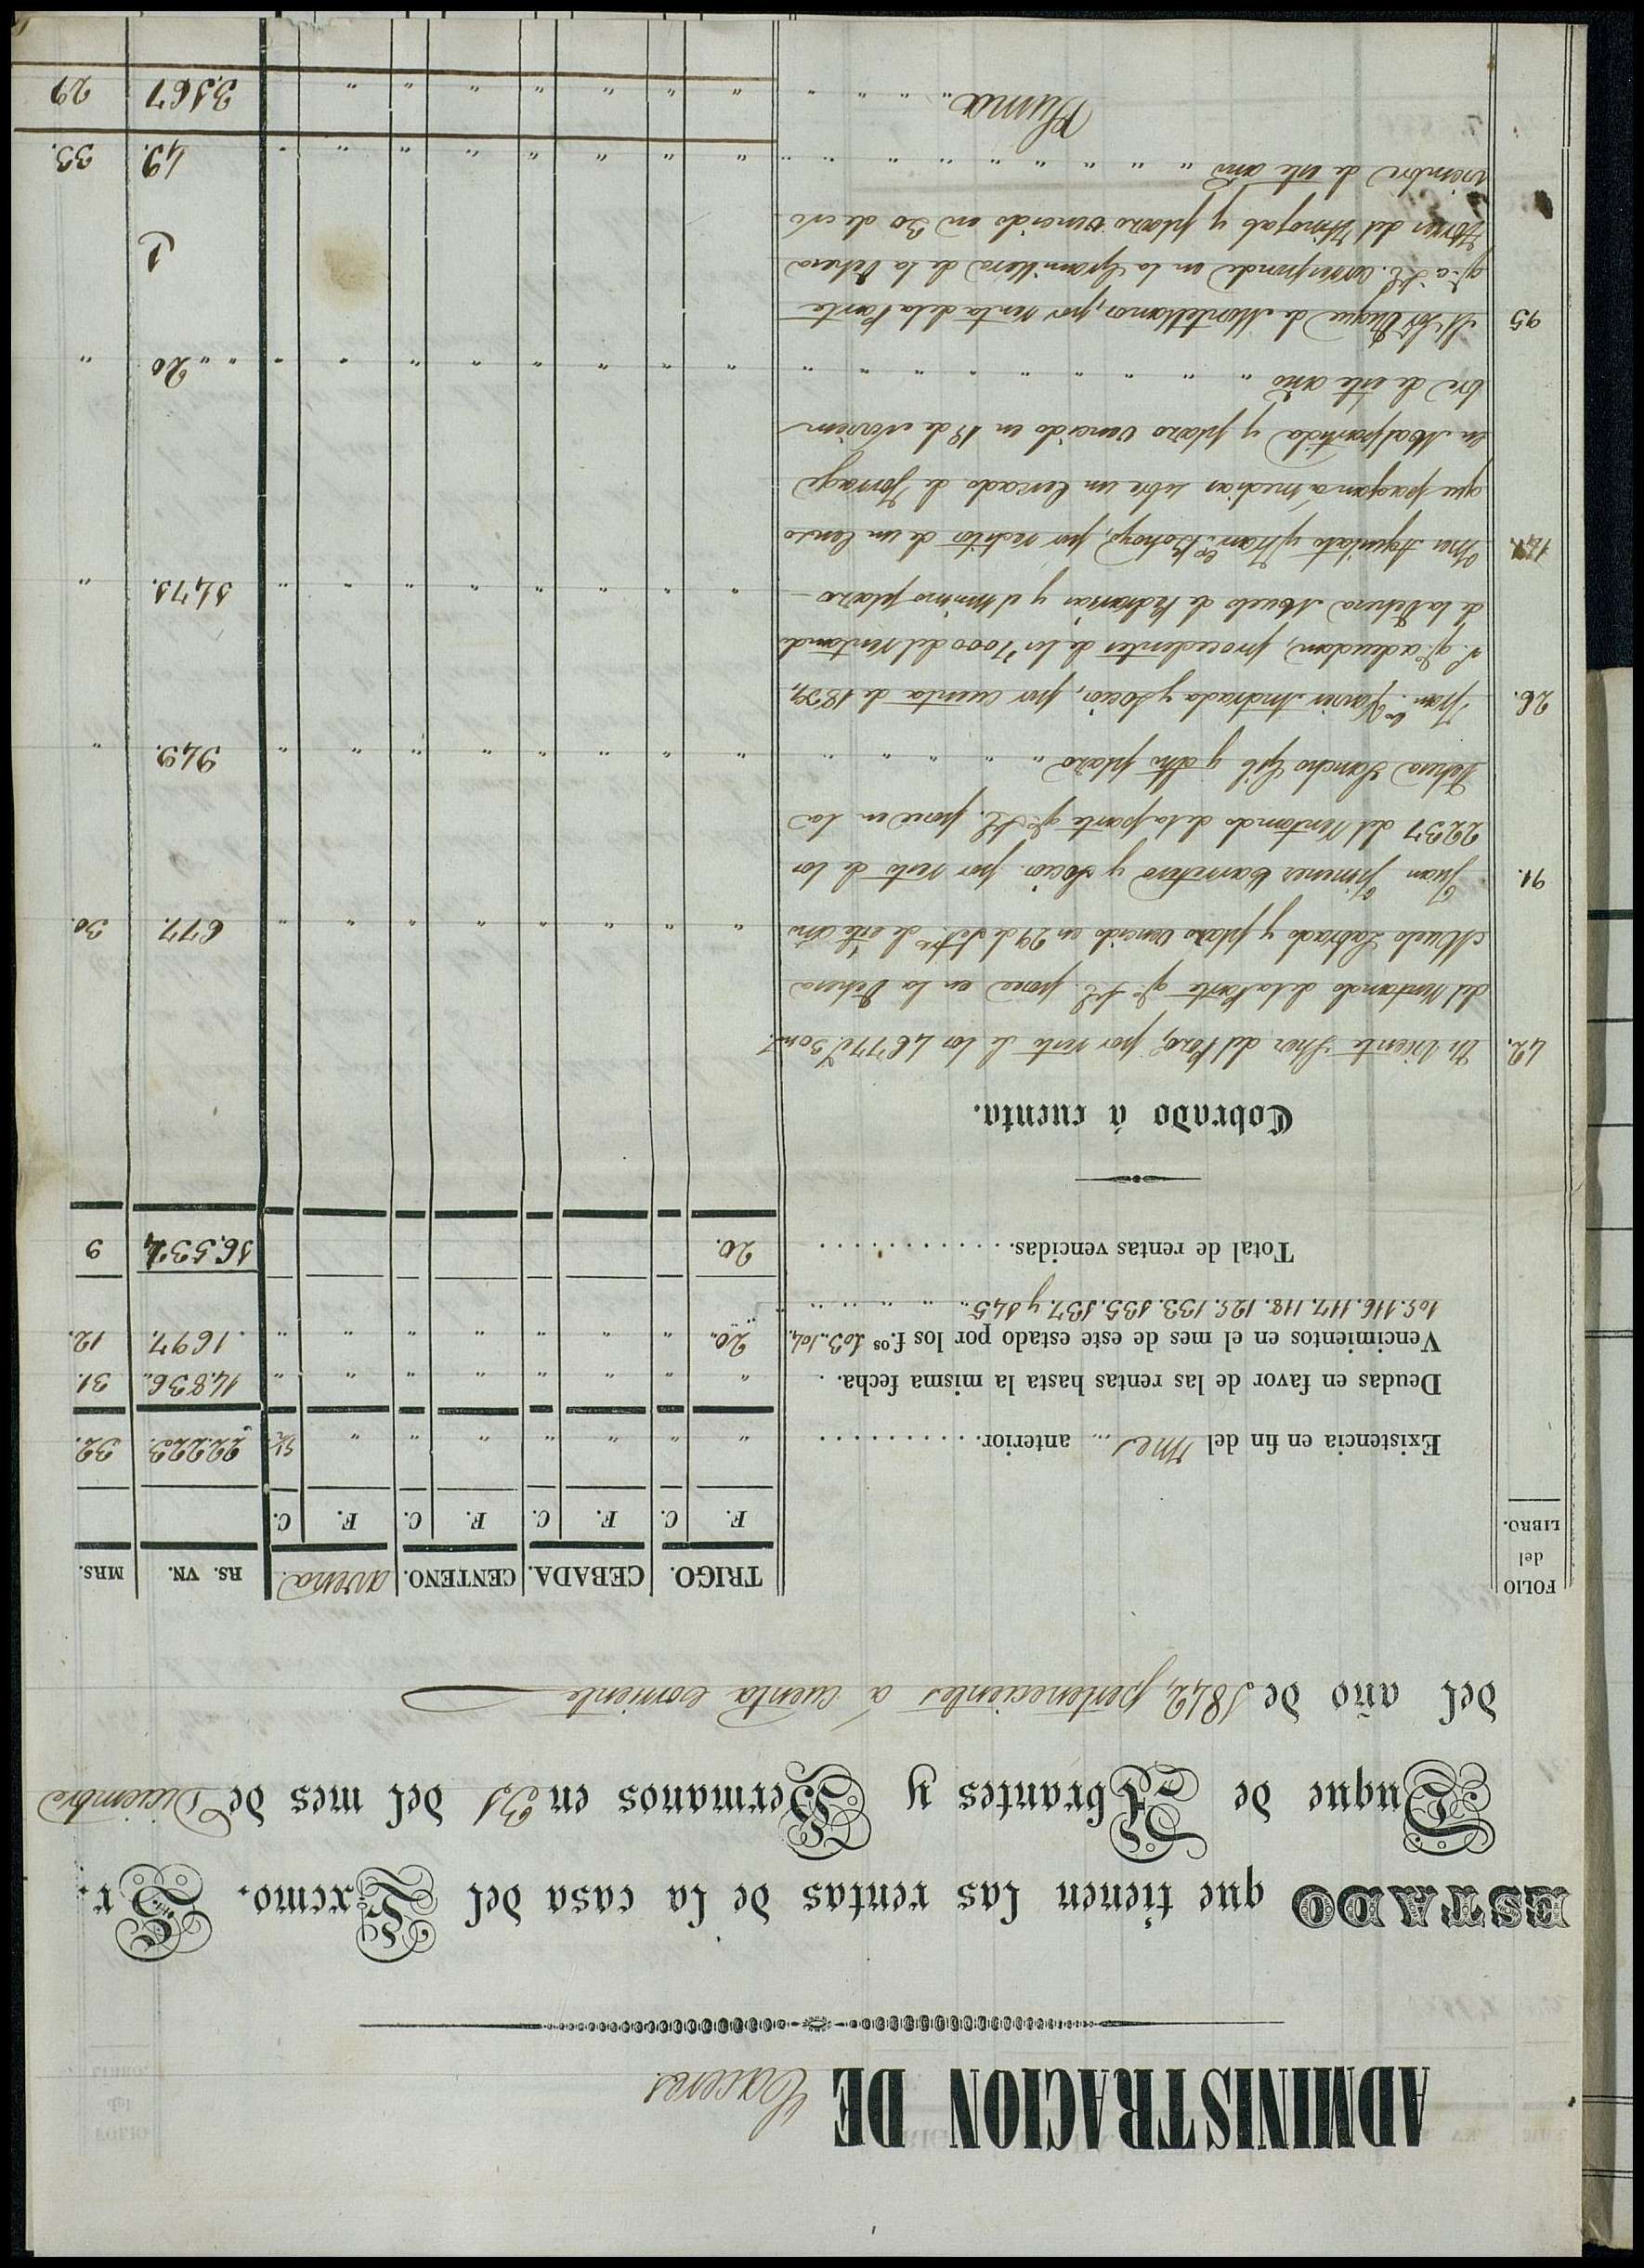 ADMINISTRACION DE Caceres
ESTADO que tienen las rentas de la casa del Excmo. Sr.
Duque de Abrantes y Hermanos en 31 del mes de Diciembre
del año de 1842, pertenecientes á cuenta corriente
FOLIO del LIBRO. TRIGO. CEBADA. CENTENO. avena. RS. VN. MRS.
F. C. F. C. F. C. F. C.
Existencia en fin del mes anterior. . . . . . . . . . . " " " " " " " 22.223. 32.
Deudas en favor de las rentas hasta la misma fecha. . " " " " " " " " 14.836. 31.
Vencimientos en el mes de este estado por los f.os 103. 104. 20. " " " " " " " 1697. 12.
105. 116. 117. 118. 125. 133. 135. 137. y 145.
Total de rentas vencidas. . . . . . . . . . . . 20. 16.534 9
Cobrado á cuenta.
42. Dn Vicente Flor del Pozo, por resto de los 4677 r. 30 ms.
del rentando de la Parte q.e S.E. posee en la Dehesa
Muelo Labrado y plazo vencido en 29 de Set.re de este año " " " " " " " " 677. 30.
91. Juan Jimenez Carretero y Socios. por resto de los
2237 del rentando de la parte q.e S.E. posee en la
Dehesa Sancho Gil y dho plazo " " " " " " " " " " " " " 949. "
26. Fran.co Xavier Andrada y Socios, por cuenta de 1879,
r. q.e adeudan, procedentes de los 7000 del rentando
de la Dehesa Muelo de Pedrarias y el mismo plazo " " " " " " " " 1,471. "
que pagan á medias sobre un Cercado de Forrage
en Malpartida y plazo vencido en 18 de Noviem-
bre de este año " " " " " " " " " " " " " " " " 20 "
95 El Sor Duque de Montellano, por renta de la Parte
q.e á S.E. corresponde en la Granillera de la Dehesa
Torres del Hinojal y plazo vencido en 30 de No-
viembre de este año " " " " " " " " " " " " " " " 49. 33.
Suma " " " " " " " " " " " 3,167 29